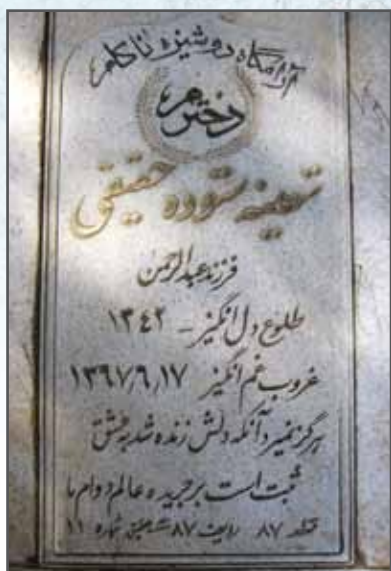 آرامگاه دوشیزه ناکام
دخترم
تهمینه ستوده حقیقی
فرزند عبدالرحمن
طلوع دل انگیز - ۱۳۴۲
غروب غم انگیز ۱۳۶۷٫۶٫۱۷
هرگز نمیرد آنکه دلش زنده شد به عشق
ثبت است بر جریده عالم دوام ما
قطعه ۸۷ ردیف ۸۷ شماره ۱۱